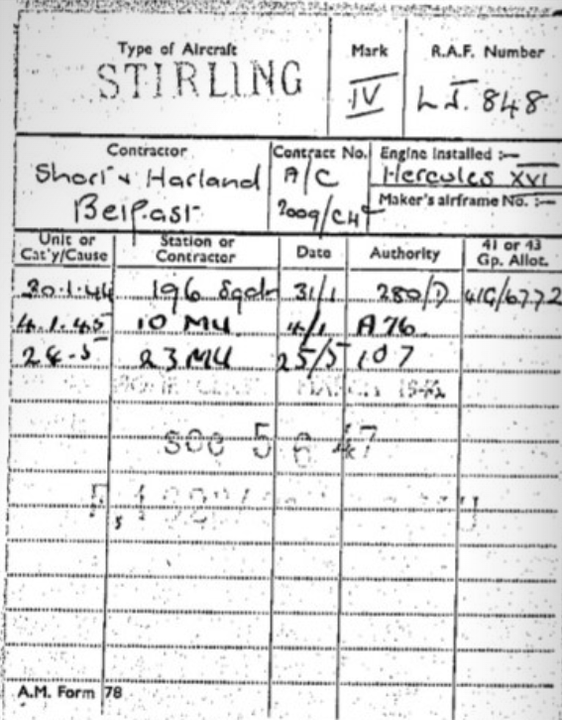 Type of Aircraft Mark R.A.F. Number
STIRLING IV LJ.848
Contractor Contract No. Engine Installed :—
Short & Harland A/C Hercules XVI
Belfast 2009/C4 Maker's airframe No. :—
Unit or Cat'y/Cause Station or Contractor Date Authority 41 or 43 Gp. Allot.
30.1.44 196 Sqdn 31/1 280/D 41G/6772
4.1.45 10 MU 4/1 A76
24.5 23 MU 25/5 107
SOC 5 6 47
A.M. Form 78